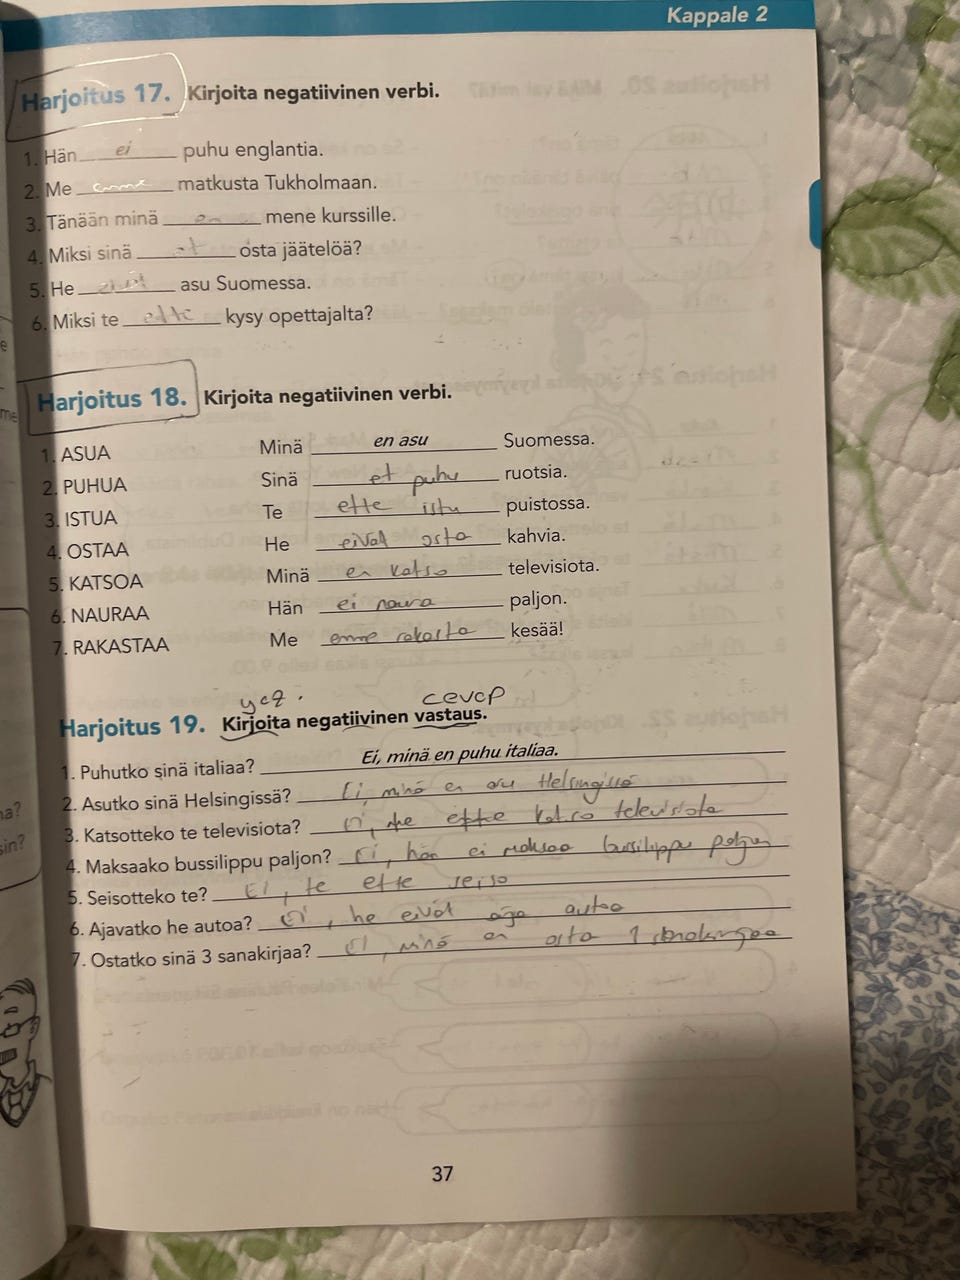 Kappale 2
Harjoitus 17. Kirjoita negatiivinen verbi.
1. Hän ei puhu englantia.
2. Me emme matkusta Tukholmaan.
3. Tänään minä en mene kurssille.
4. Miksi sinä et osta jäätelöä?
5. He eivät asu Suomessa.
6. Miksi te ette kysy opettajalta?
Harjoitus 18. Kirjoita negatiivinen verbi.
1. ASUA Minä en asu Suomessa.
2. PUHUA Sinä et puhu ruotsia.
3. ISTUA Te ette istu puistossa.
4. OSTAA He eivät osta kahvia.
5. KATSOA Minä en katso televisiota.
6. NAURAA Hän ei naura paljon.
7. RAKASTAA Me emme rakasta kesää!
cevap
Harjoitus 19. Kirjoita negatiivinen vastaus.
1. Puhutko sinä italiaa? Ei, minä en puhu italiaa.
2. Asutko sinä Helsingissä? Ei, minä en asu Helsingissä
3. Katsotteko te televisiota? Ei, me katso televisiota
4. Maksaako bussilippu paljon? Ei, hän ei maksaa bussilippu paljon
5. Seisotteko te? Ei, te ette seiso
6. Ajavatko he autoa? Ei, he eivät aja autoa
7. Ostatko sinä 3 sanakirjaa? Ei, minä en osta sanakirjaa
37